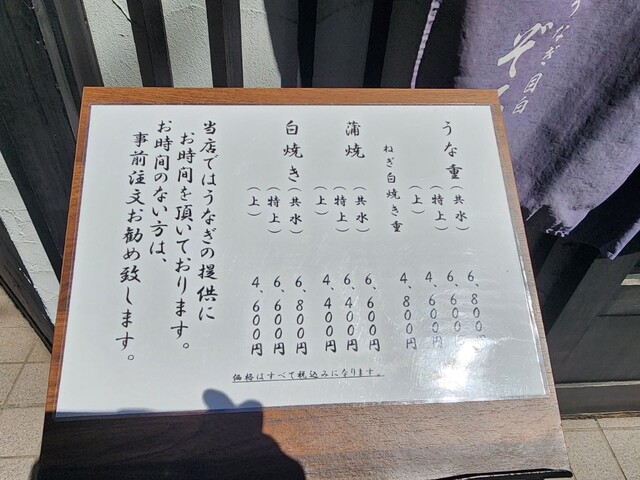 うなぎ目白
うな重（共水） 6、800円
（特上） 6、600円
（上） 4、600円
ねぎ白焼き重 4、800円
蒲焼（共水） 6、600円
（特上） 6、400円
（上） 4、400円
白焼き（共水） 6、800円
（特上） 6、600円
（上） 4、600円
価格はすべて税込みになります。
当店ではうなぎの提供に
お時間を頂いております。
お時間のない方は、
事前注文お勧め致します。